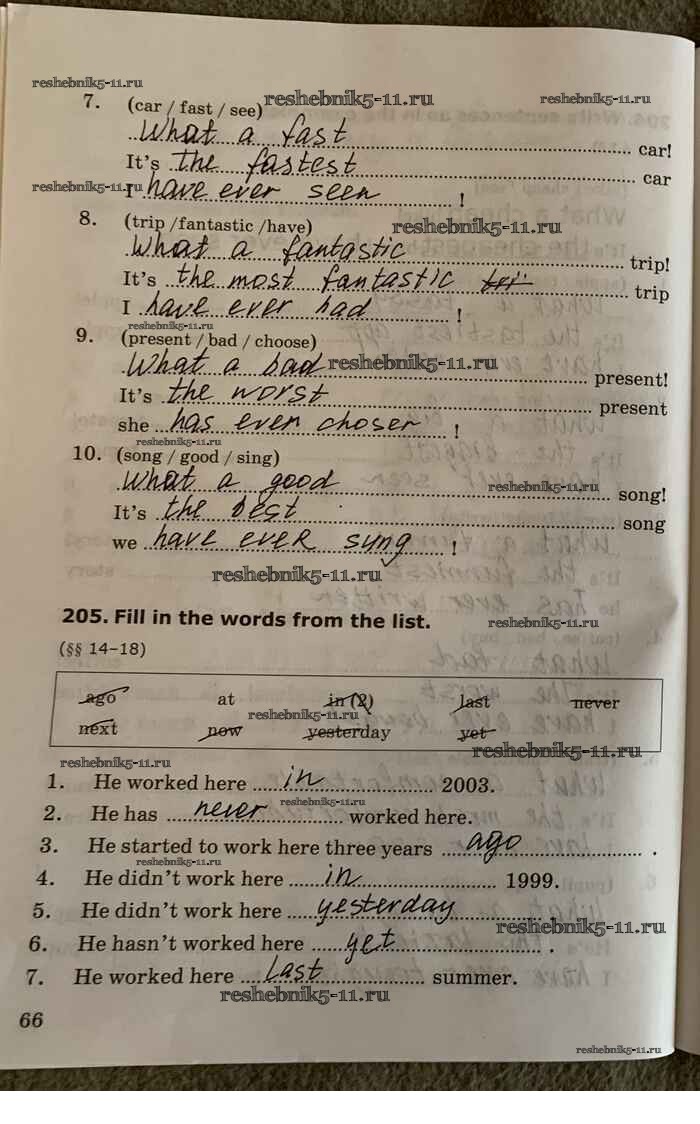 reshebnik5-11.ru
7. (car / fast / see) reshebnik5-11.ru reshebnik5-11.ru
What a fast car!
It's the fastest car
reshebnik5-11.ru reshebnik5-11.ru
I have ever seen !
8. (trip /fantastic /have) reshebnik5-11.ru
What a fantastic trip!
It's the most fantastic trip
I have ever had !
reshebnik5-11.ru
9. (present / bad / choose)
What a bad reshebnik5-11.ru present!
It's the worst present
she has ever choser !
reshebnik5-11.ru
10. (song / good / sing)
What a good reshebnik5-11.ru song!
It's the best song
we have ever sung !
reshebnik5-11.ru
205. Fill in the words from the list. reshebnik5-11.ru
(§§ 14–18)
ago at in (2) last never
reshebnik5-11.ru
next now yesterday yet
reshebnik5-11.ru
reshebnik5-11.ru
1. He worked here in 2003.
2. He has never reshebnik5-11.ru worked here.
3. He started to work here three years ago .
reshebnik5-11.ru
4. He didn't work here in 1999.
5. He didn't work here yesterday
reshebnik5-11.ru
6. He hasn't worked here yet .
7. He worked here last summer.
reshebnik5-11.ru
66
reshebnik5-11.ru